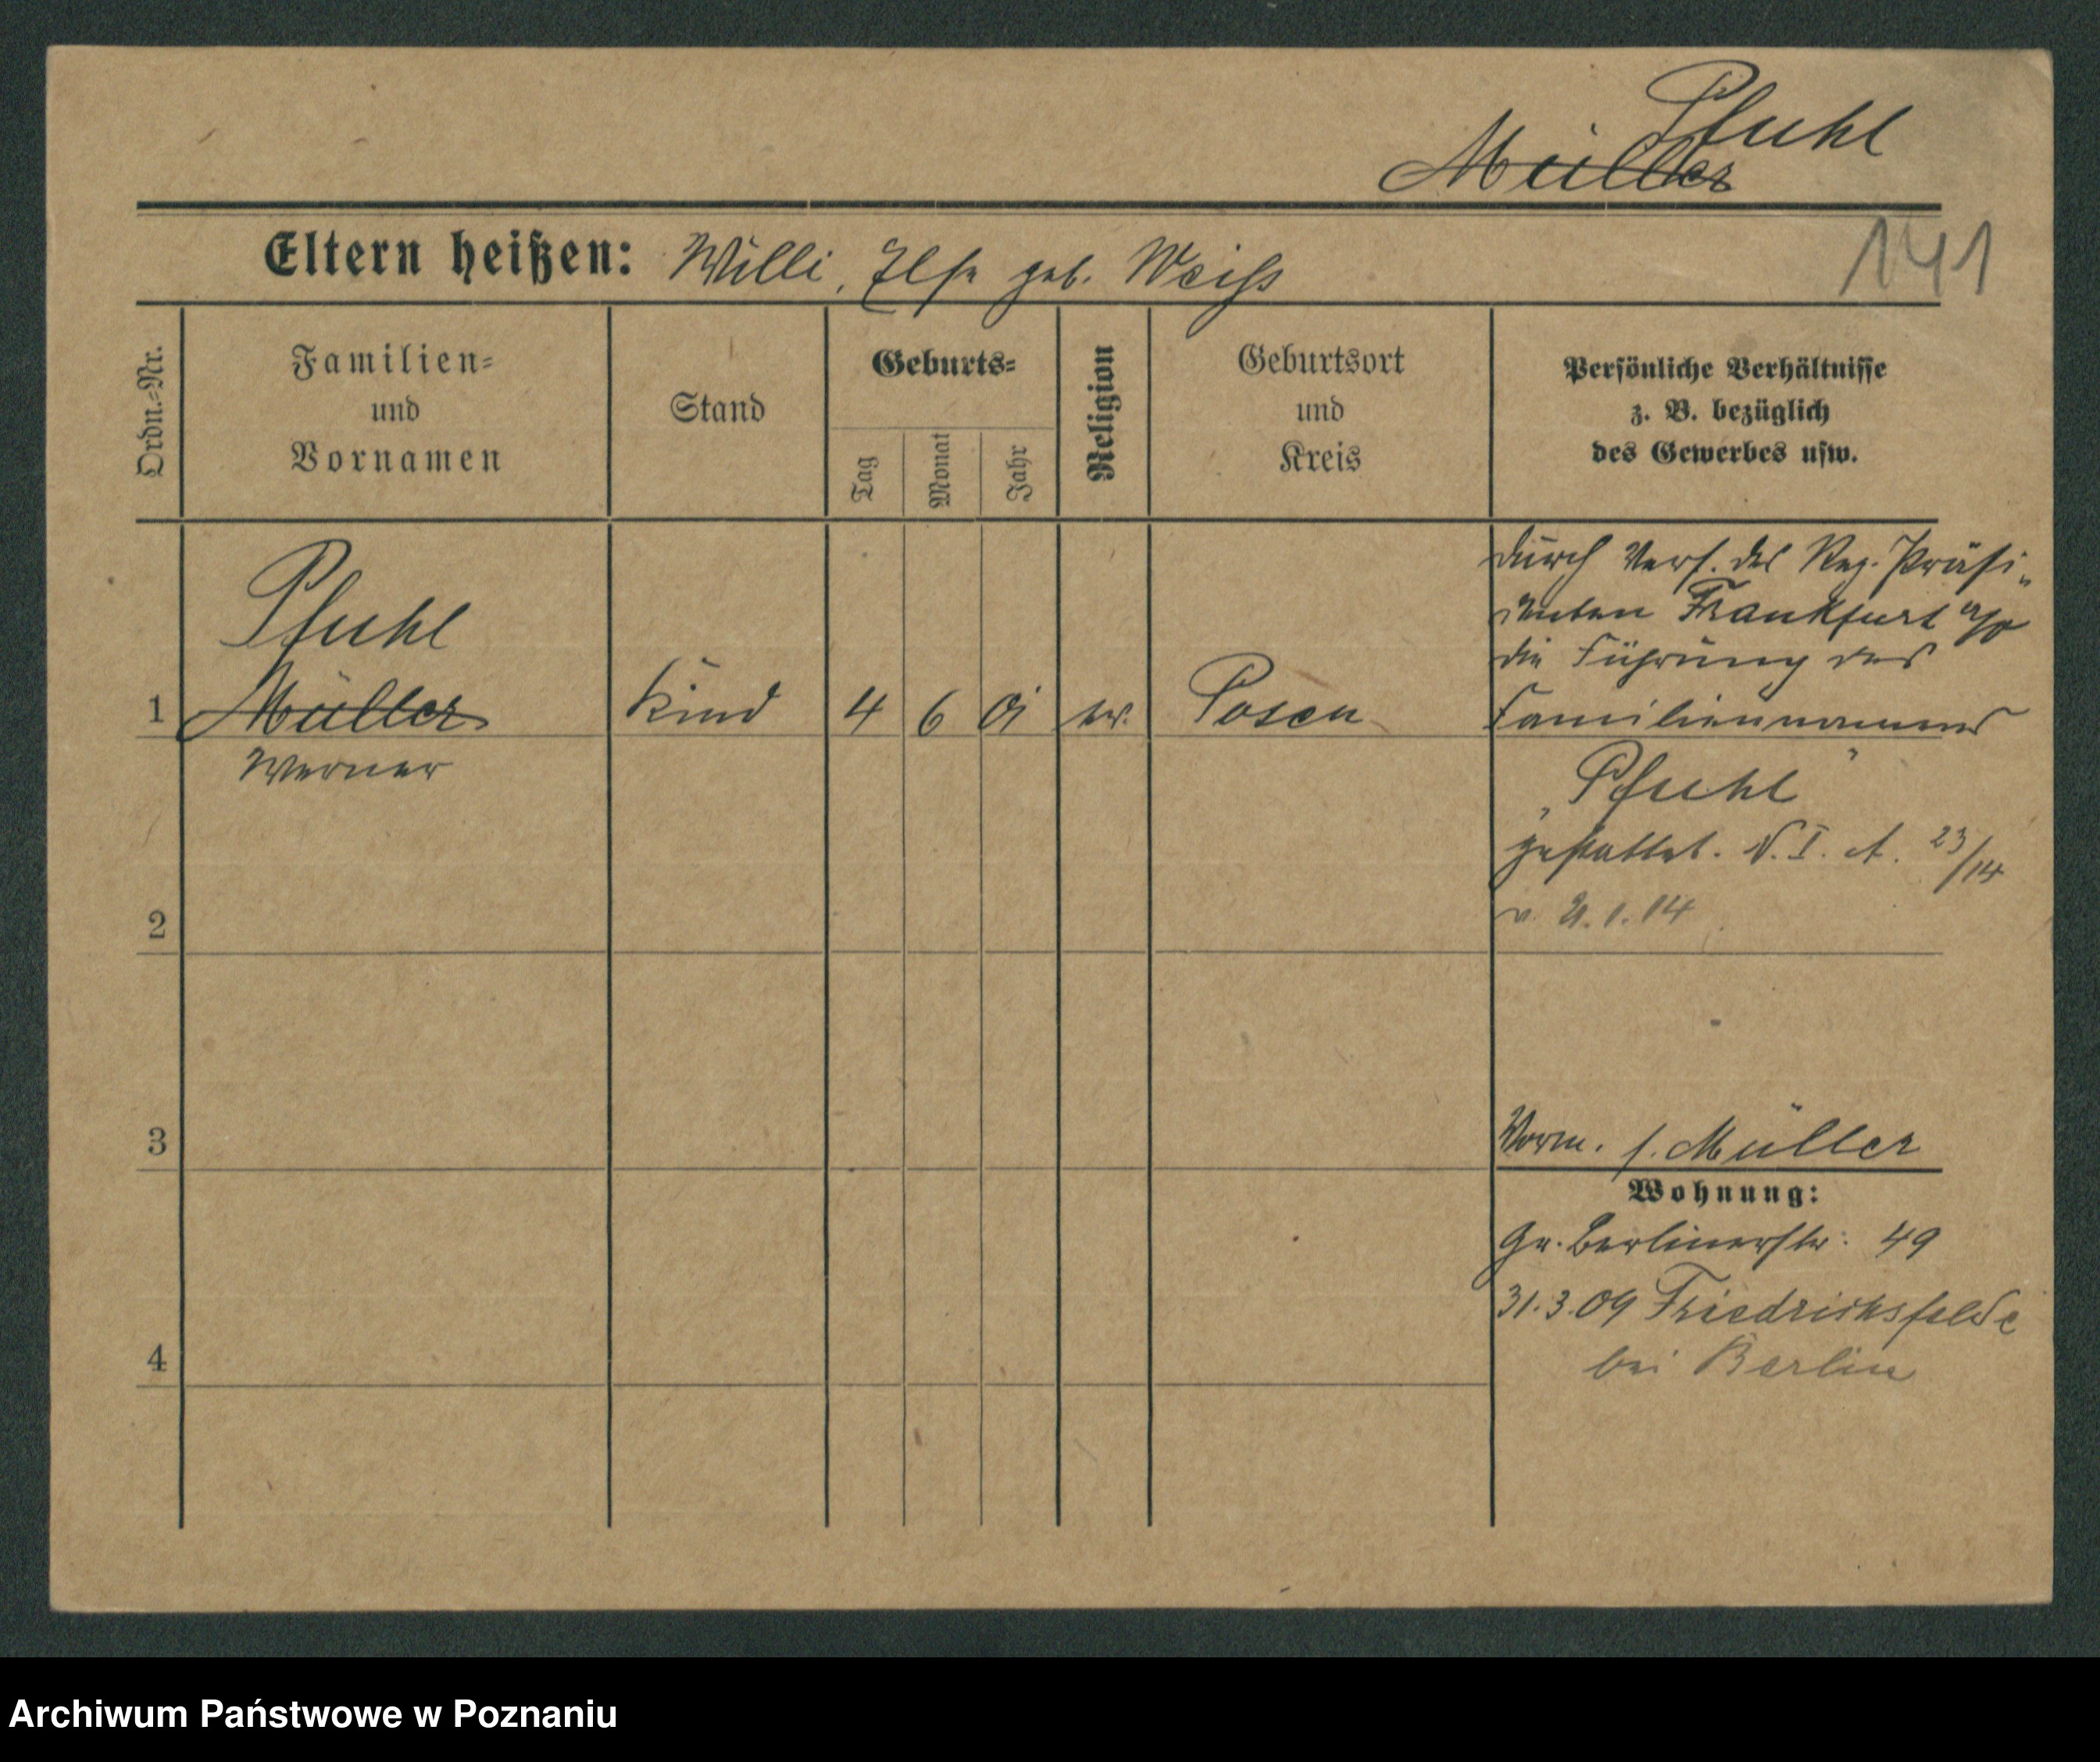 Pfuhl
Müller
Eltern heißen: Willi, Else geb. Weiss
141
Ordn.-Nr.
Familien-
und
Vornamen
Stand
Geburts-
Tag
Monat
Jahr
Religion
Geburtsort
und
Kreis
Persönliche Verhältnisse
z. B. bezüglich
des Gewerbes usw.
Pfuhl
1 Müller Kind 4 6 01 ev. Posen
Werner
durch Verf. des Reg. Präsi-
denten Frankfurt a/O
die Führung des
Familiennamens
„Pfuhl"
gestattet. N. I. A. 23/14
v. 1.14
2
3
Vorm. s. Müller
Wohnung:
Gr. Berlinerstr. 49
31.3.09 Friedrichsfelde
bei Berlin
4
Archiwum Państwowe w Poznaniu